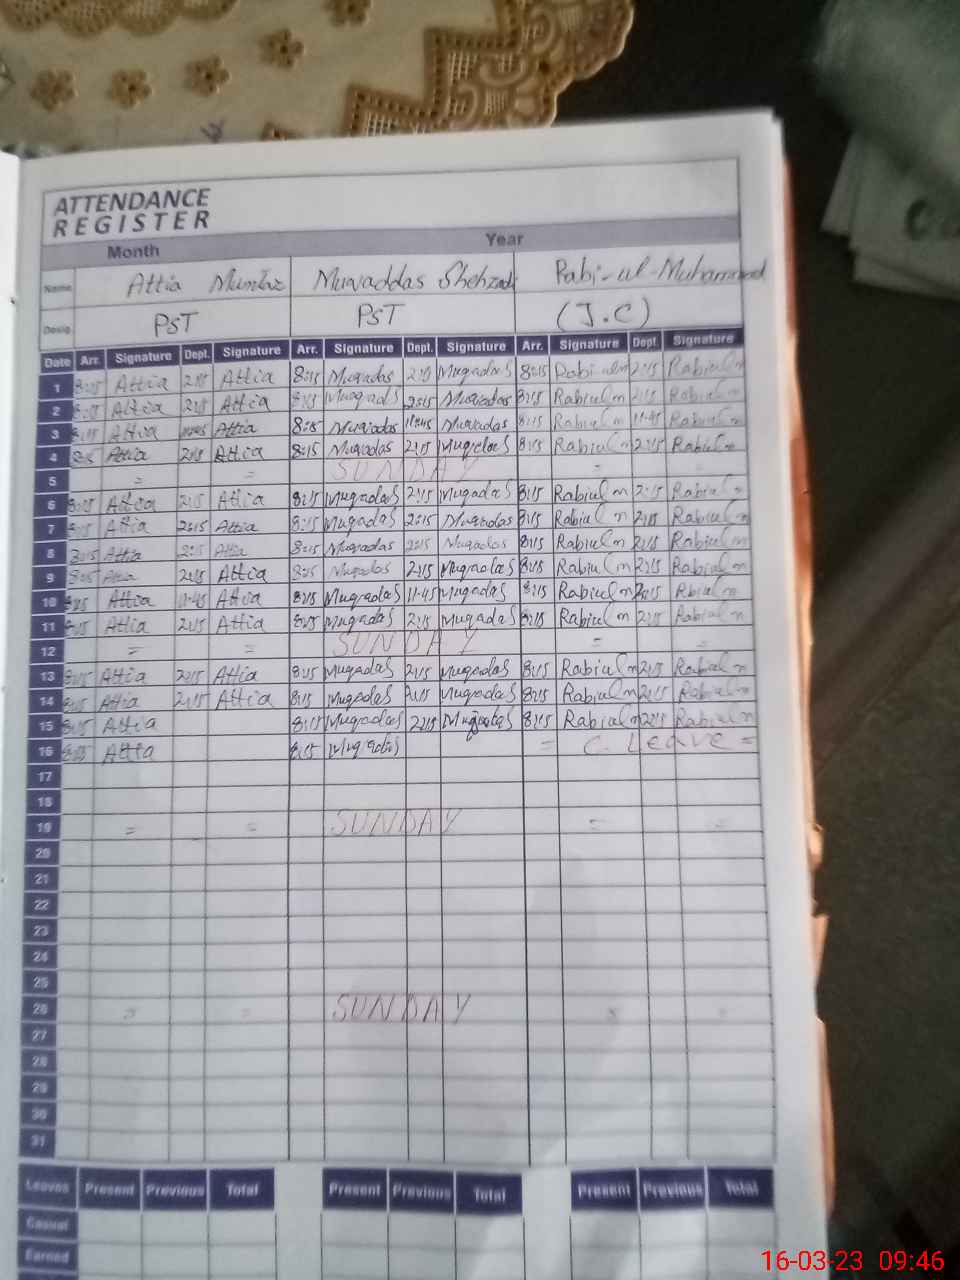 ATTENDANCE
REGISTER
Month Year
Name Attia Mumtaz Muqaddas Shehzadi Rabi-ul-Muhammad
Desig. PST PST (J.C)
Date Arr. Signature Dept. Signature Arr. Signature Dept. Signature Arr. Signature Dept. Signature
1 8:15 Attia 2:15 Attia 8:15 Muqadas 2:15 Muqadas 8:15 Rabiulm 2:15 Rabiulm
2 8:15 Attia 2:15 Attia 8:15 Muqadas 2:15 Muqadas 8:15 Rabiulm 2:15 Rabiulm
3 8:15 Attia 11:45 Attia 8:15 Muqadas 11:45 Muqadas 8:15 Rabiulm 11:45 Rabiulm
4 8:15 Attia 2:15 Attia 8:15 Muqadas 2:15 Muqadas 8:15 Rabiulm 2:15 Rabiulm
5 = = SUNDAY = =
6 8:15 Attia 2:15 Attia 8:15 Muqadas 2:15 Muqadas 8:15 Rabiulm 2:15 Rabiulm
7 8:15 Attia 2:15 Attia 8:15 Muqadas 2:15 Muqadas 8:15 Rabiulm 2:15 Rabiulm
8 8:15 Attia 2:15 Attia 8:15 Muqadas 2:15 Muqadas 8:15 Rabiulm 2:15 Rabiulm
9 8:15 Attia 2:15 Attia 8:15 Muqadas 2:15 Muqadas 8:15 Rabiulm 2:15 Rabiulm
10 8:15 Attia 11:45 Attia 8:15 Muqadas 11:45 Muqadas 8:15 Rabiulm Rbiulm
11 8:15 Attia 2:15 Attia 8:15 Muqadas 2:15 Muqadas 8:15 Rabiulm 2:15 Rabiulm
12 = = SUNDAY = =
13 8:15 Attia 2:15 Attia 8:15 Muqadas 2:15 Muqadas 8:15 Rabiulm 2:15 Rabiulm
14 8:15 Attia 2:15 Attia 8:15 Muqadas 2:15 Muqadas 8:15 Rabiulm 2:15 Rabiulm
15 8:15 Attia 8:15 Muqadas 2:15 Muqadas 8:15 Rabiulm 2:15 Rabiulm
16 8:15 Attia 8:15 Muqadas = C. Leave =
17
18
19 = = SUNDAY = =
20
21
22
23
24
25
26 = = SUNDAY = =
27
28
29
30
31
Leaves Present Previous Total Present Previous Total Present Previous Total
Casual
Earned
16-03-23 09:46